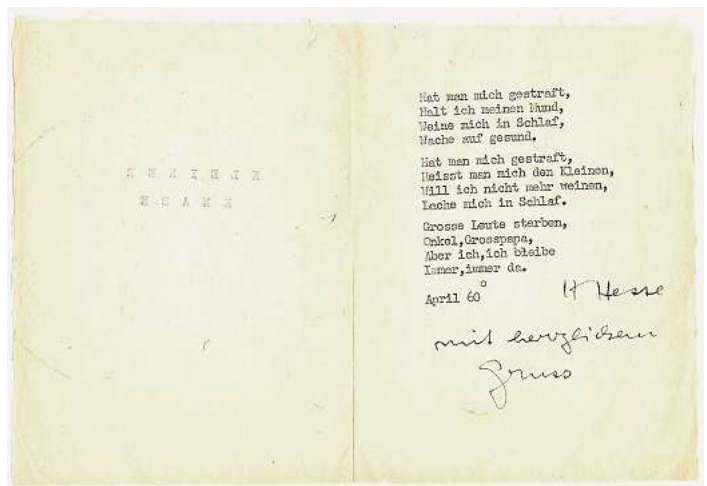 K L E I N E R
K N A B E
Hat man mich gestraft,
Halt ich meinen Mund,
Weine mich in Schlaf,
Wache auf gesund.
Hat man mich gestraft,
Heisst man mich den Kleinen,
Will ich nicht mehr weinen,
Lache mich in Schlaf.
Grosse Leute sterben,
Onkel,Grosspapa,
Aber ich,ich bleibe
Immer,immer da.
April 60° H Hesse
mit herzlichem
Gruss